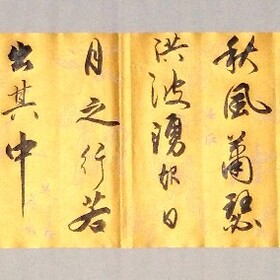 秋風蕭瑟
洪波踴起日
月之行若
出其中